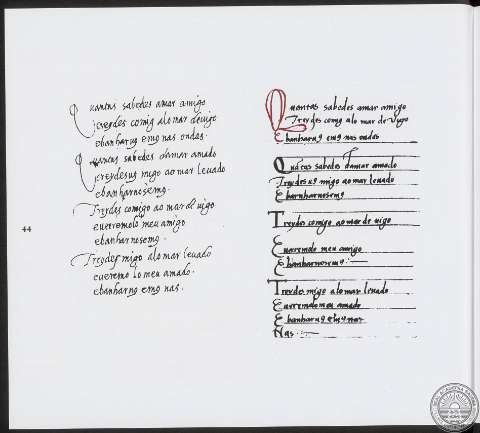 Quantas sabedes amar amigo
treydes comig alo mar deuigo
ebanharnꝯ emꝯ nas ondas.
Quantas sabedes damar amado
treydesus migo ao mar leuado
ebanharnosemꝯ.
Treydes comigo ao mar de uigo
eueeremolo meu amigo
ebanharnosemꝯ.
Treydes migo alo mar leuado
eueeremo lo meu amado.
ebanharnꝯ emꝯ nas.
44
Quantas sabedes amar amigo
Treydes comig alo mar de uigo
Ebanharnꝯ emꝯ nas ondas
Quãtas sabedes damar amado
Treydesus migo ao mar leuado
Ebanharnosemꝯ
Treydes comigo ao mar de uigo
Eueeremolo meu amigo
Ebanharnosemꝯ
Treydes migo alo mar leuado
Eueeremolo meu amado
Ebanharnꝯ emꝯ nas
Nas